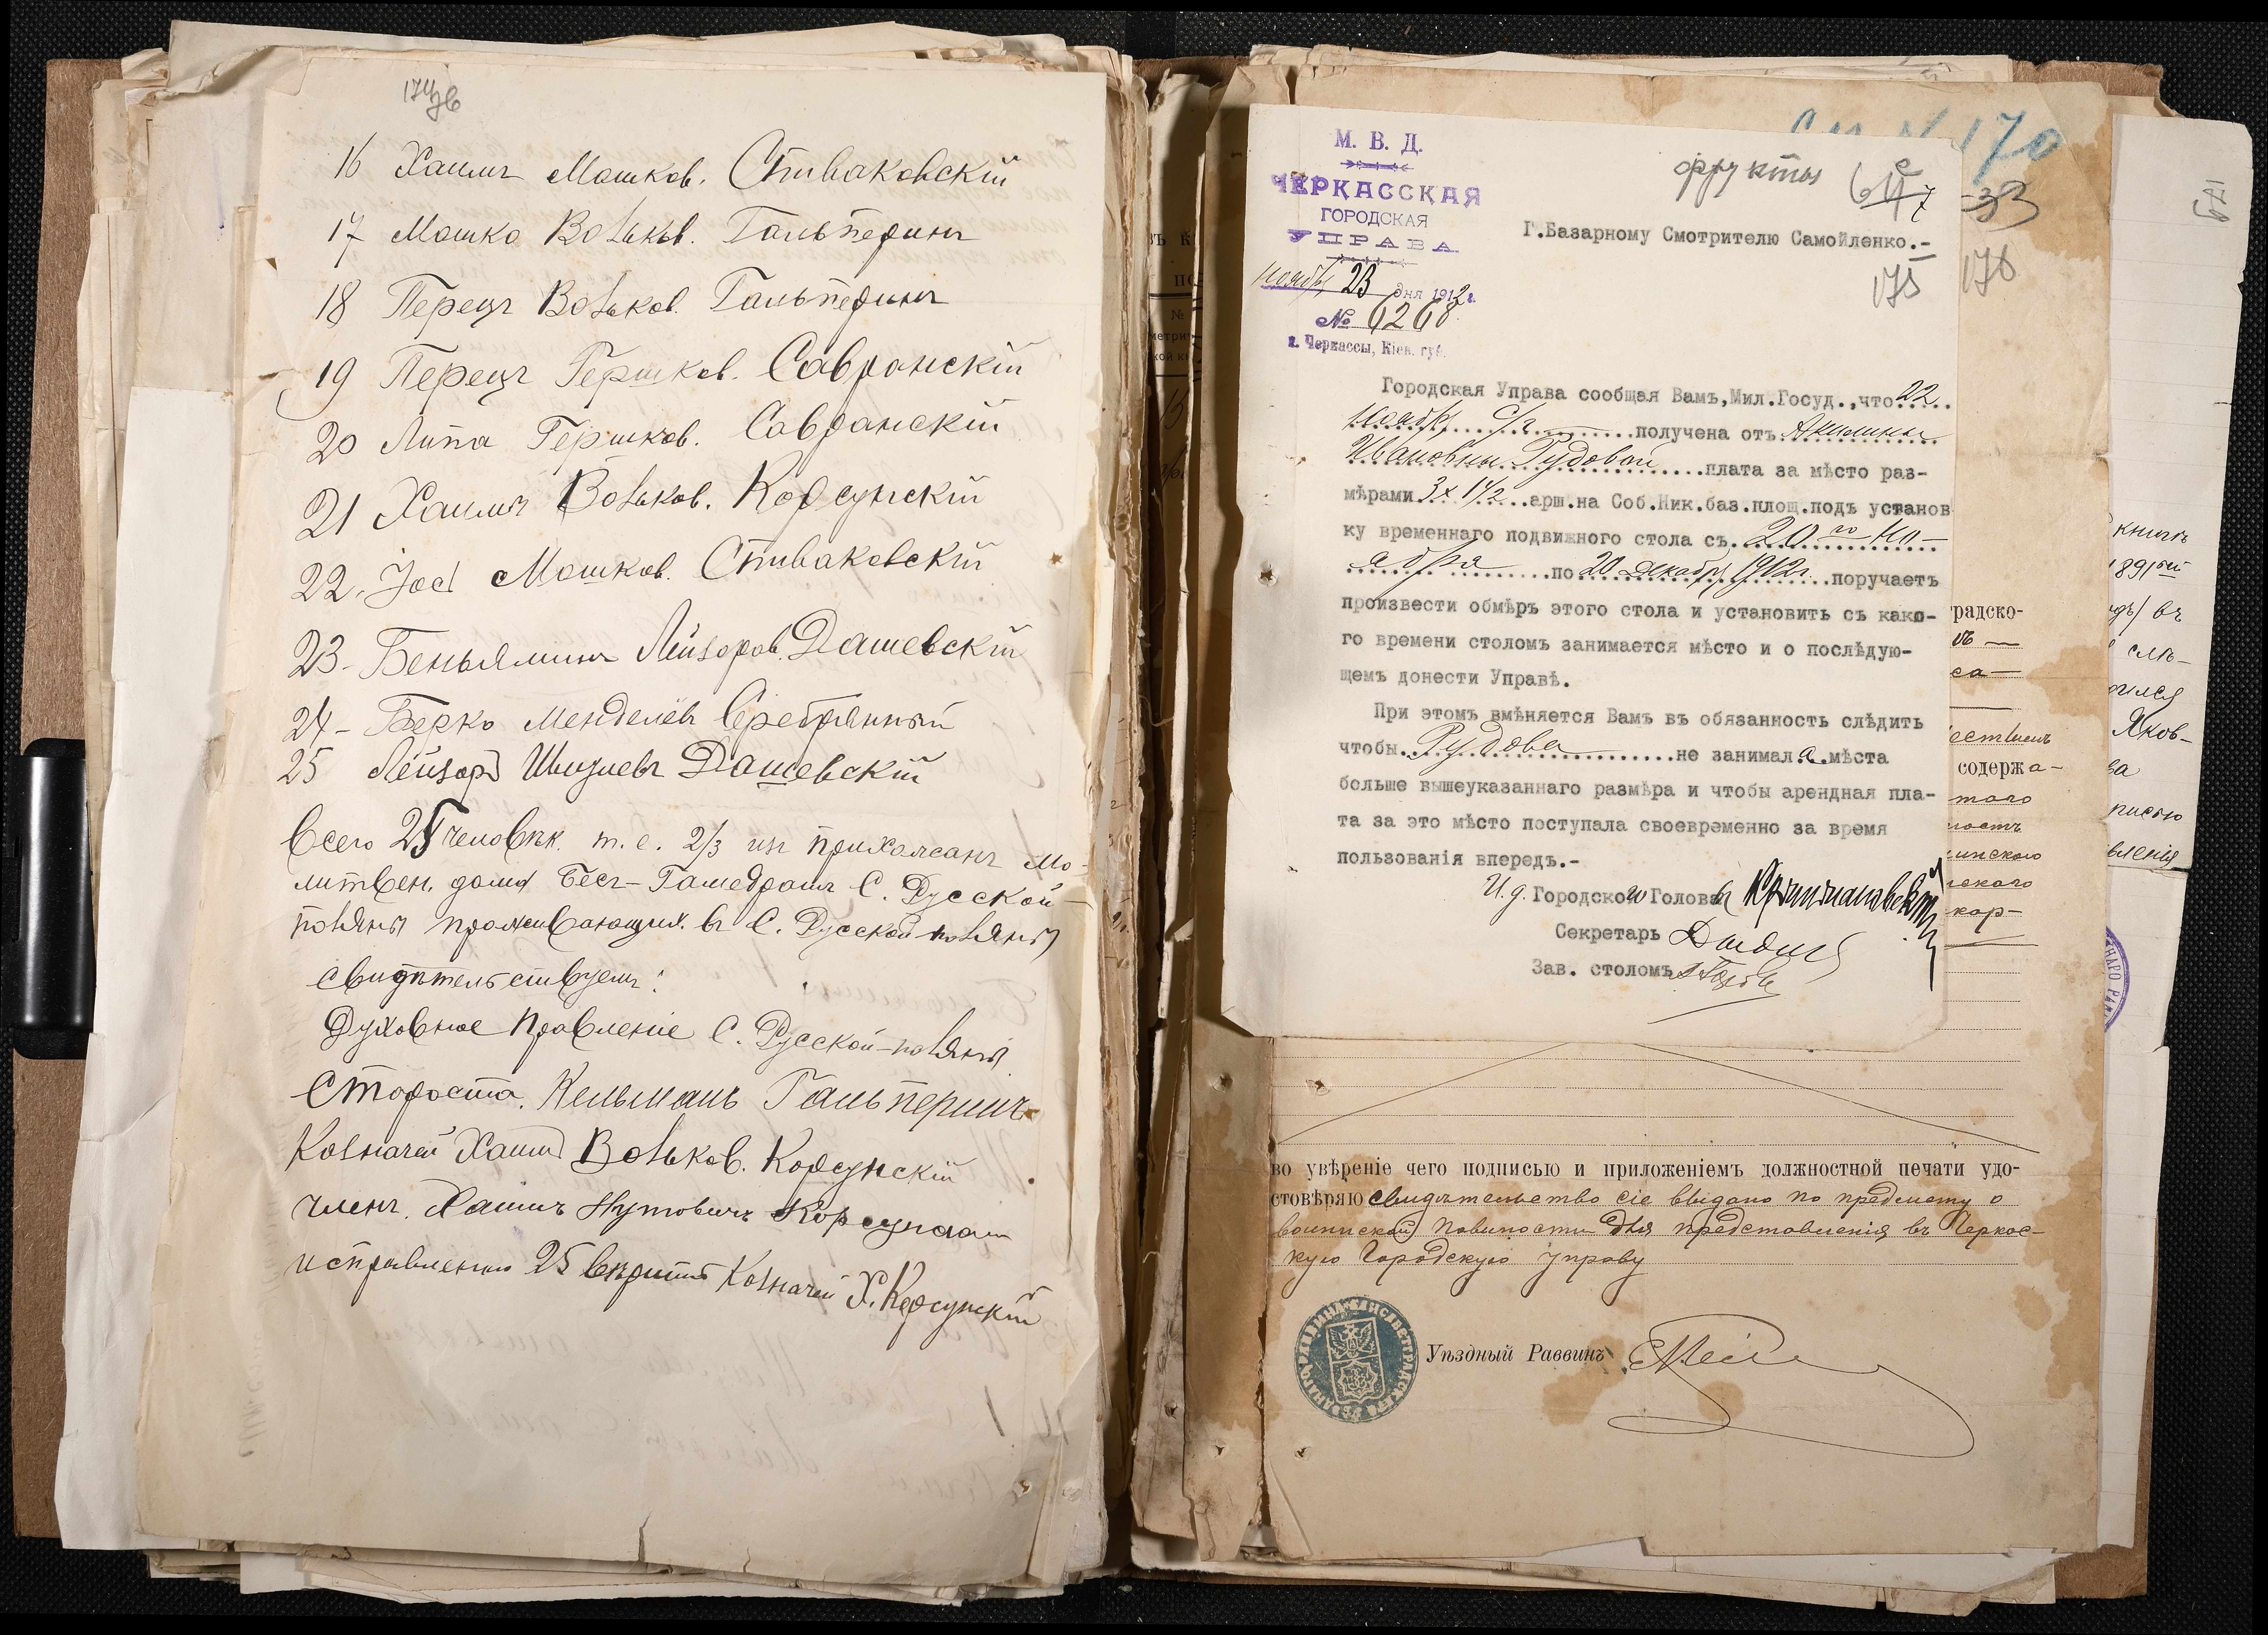 174 зв
16 Хаимъ Мошков. Спиваковскій
17 Мошко Вольков. Гальперинъ
18 Перецъ Вольков. Гальперинъ
19 Перецъ Гершков. Савранскій
20 Липа Гершков. Савранскій
21 Хаимъ Вольков. Корсунскій
22. Іос Мошков. Спиваковскій
23- Беньяминъ Лейзоров. Дашевскій
24- Берко Менделевъ Серебрянный
25 Лейзоръ Шмулевъ Дашевскій
Всего 25 человѣк. т. е. 2/3 изъ прихожанъ мо-
литвен. дома Бесъ-Гамедрашъ С. Русской-
поляны проживающих. въ С. Русской-поляны
свидѣтельствуемъ:
Духовное Правленіе С. Русской-поляны
Староста. Кельманъ Гальперинъ
Казначей Хаимъ Вольков. Корсунскій
Членъ. Хаимъ Нутовичъ Корсунскій
исправленно 25 вѣрить Казначей Х. Корсунскій
170
М. В. Д.
ЧЕРКАССКАЯ
ГОРОДСКАЯ
УПРАВА
ноября 23 дня 1912 г.
№ 6268
г. Черкассы, Кіев. губ.
фрукты
33
Г.Базарному Смотрителю Самойленко.-
175
176
Городская Управа сообщая Вамъ,Мил.Госуд.,что 22
ноября с/г получена отъ Акилины
Ивановны Рудовой плата за мѣсто раз-
мѣрами 3 х 1 1/2 арш.на Соб.Ник.баз.площ.подъ установ
ку временнаго подвижного стола съ 20 го но-
ября по 20 декабря 1912 г. поручаетъ
произвести обмѣръ этого стола и установить съ како-
го времени столомъ занимается мѣсто и о послѣдую-
щемъ донести Управѣ.
При этомъ вмѣняется Вамъ въ обязанность слѣдить
чтобы Рудова не занимал а мѣста
больше вышеуказаннаго размѣра и чтобы арендная пла-
та за это мѣсто поступала своевременно за время
пользованія впередъ.-
И. д. Городского Головы
Секретарь
Зав. столомъ
во увѣреніе чего подписью и приложеніемъ должностной печати удо-
стовѣряю свидѣтельство сіе выдано по предмету о
воинской повинности для представленія въ Черкас-
кую Городскую Управу
Уѣздный Раввинъ
градско-
содержа-
таго
инского
кор-
книгѣ
1891
въ
слѣ-
Яков-
ва
писью
вленія